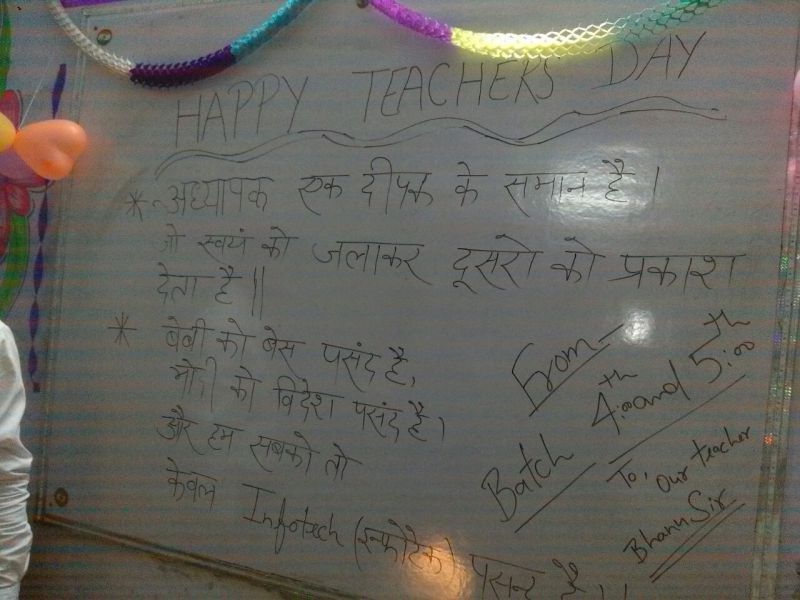 HAPPY TEACHERS DAY
* अध्यापक एक दीपक के समान है।
जो स्वयं को जलाकर दूसरो को प्रकाश
देता है॥
* बेबी को बेस पसंद है,
मोदी को विदेश पसंद है।
और हम सबको तो
केवल Infotech (इन्फोटेक) पसन्द है।
From-
Batch 4:00th and 5:00th
To, Our teacher
Bhanu Sir